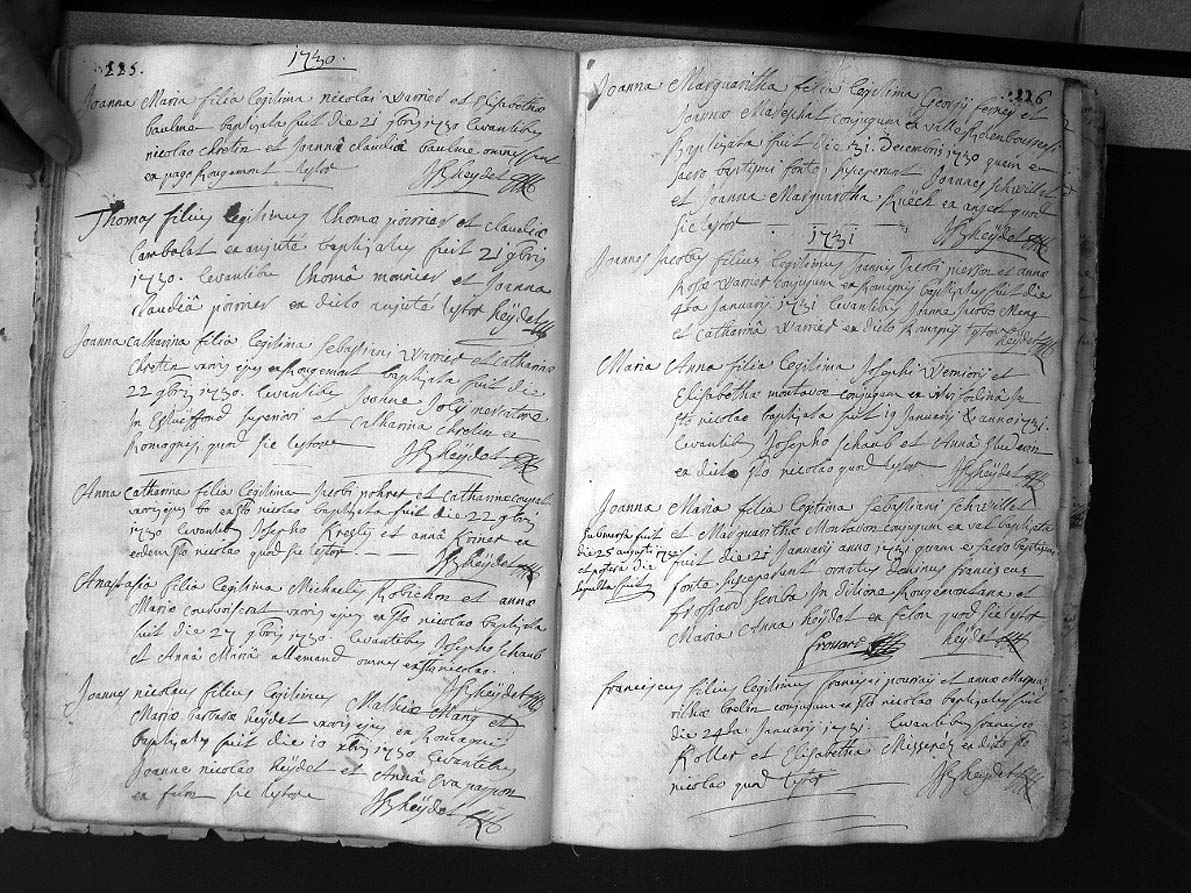 225.
1730.
Joanna Maria filia legitima nicolai warrier et Elisabethæ
baulme baptizata fuit die 21 9bris 1730 levantibus
nicolao chretin et Joannâ claudiâ baulme omnes sunt
ex pago Rougemont testor JB heÿdet
Thomas filius legitimus thomæ poirrier et claudiæ
Cambolat ex anjuté baptizatus fuit 21 9bris
1730. levantibus thomâ monnier et Joanna
claudiâ poirrier ex dicto anjuté testor heÿdet
Joanna catharina filia legitima sebastiani warrier et catharinæ
chretin uxoris ejus ex Rougemont baptizata fuit die
22 9bris 1730. levantibus Joanne Jolÿ mercatore
in superiori et catharina chretin ex
Romagnÿ, quod sic testor JB heÿdet
Anna catharina filia legitima Jacobi pohrer et catharinæ
uxoris ejus ex sto nicolao baptizata fuit die 22 9bris
1730 levantibus Josepho et annâ ex
eodem sto nicolao quod sic testor JB heÿdet
Anastasia filia legitima Michaelis Robichon et annæ
Mariæ uxoris ejus ex sto nicolao baptizata
fuit die 27 9bris 1730. levantibus Josepho schaub
et Annâ Mariâ allemand omnes ex sto nicolao.
JB heÿdet
Joannes nicolaus filius legitimus Mathiæ Mang et
Mariæ barbaræ heÿdet uxoris ejus ex Romagni
baptizatus fuit die 10 xbris 1730 levantibus
Joanne nicolao heÿdet et Annâ Eva
ex sic testor JB heÿdet
226
Joanna Margaritha filia legitima Georgii ferneÿ et
Joannæ conjugum ex valle
Baptizata fuit die 31. Decembris 1730 quam ex
sacro baptismi fonte susceperunt Joannes schwillet
et Joanna Margaritha ex anjeot quod
sic testor JB heÿdet
1731
Joannes Jacobus filius legitimus Joannis Jacobi pierson et annæ
Rosæ warrier conjugum ex Romagnÿ baptizatus fuit die
4ta Januarii 1731 levantibus Joanne Jacobo Meng
et catharinâ warrier ex dicto Romagnÿ testor heÿdet
Maria Anna filia legitima Josephi et
Elisabethæ montavon conjugum ex
sto nicolao baptizata fuit 19 Januarii anno 1731.
levantibus Josepho schaub et Annâ
ex dicto sto nicolao quod testor JB heÿdet
Joanna Maria filia legitima sebastiani schwillet
et Margarithæ Montavon conjugum ex val baptizata
fuit die 21 Januarii anno 1731 quam e sacro baptismi
fonte susceperunt ornatus Dominus franciscus
frossard scriba in ditione Rougemontana et
Maria Anna heÿdet ex felon quod sic testor
frossard heÿdet
submersa fuit
die 25 augusti 1732
et postera die
sepulta fuit
franciscus filius legitimus francisci et annæ Marga-
rithæ bredin conjugum ex sto nicolao baptizatus fuit
die 24ta Januarii 1731. levantibus francisco
Koller et Elisabetha ex dicto sto
nicolao quod testor JB heÿdet